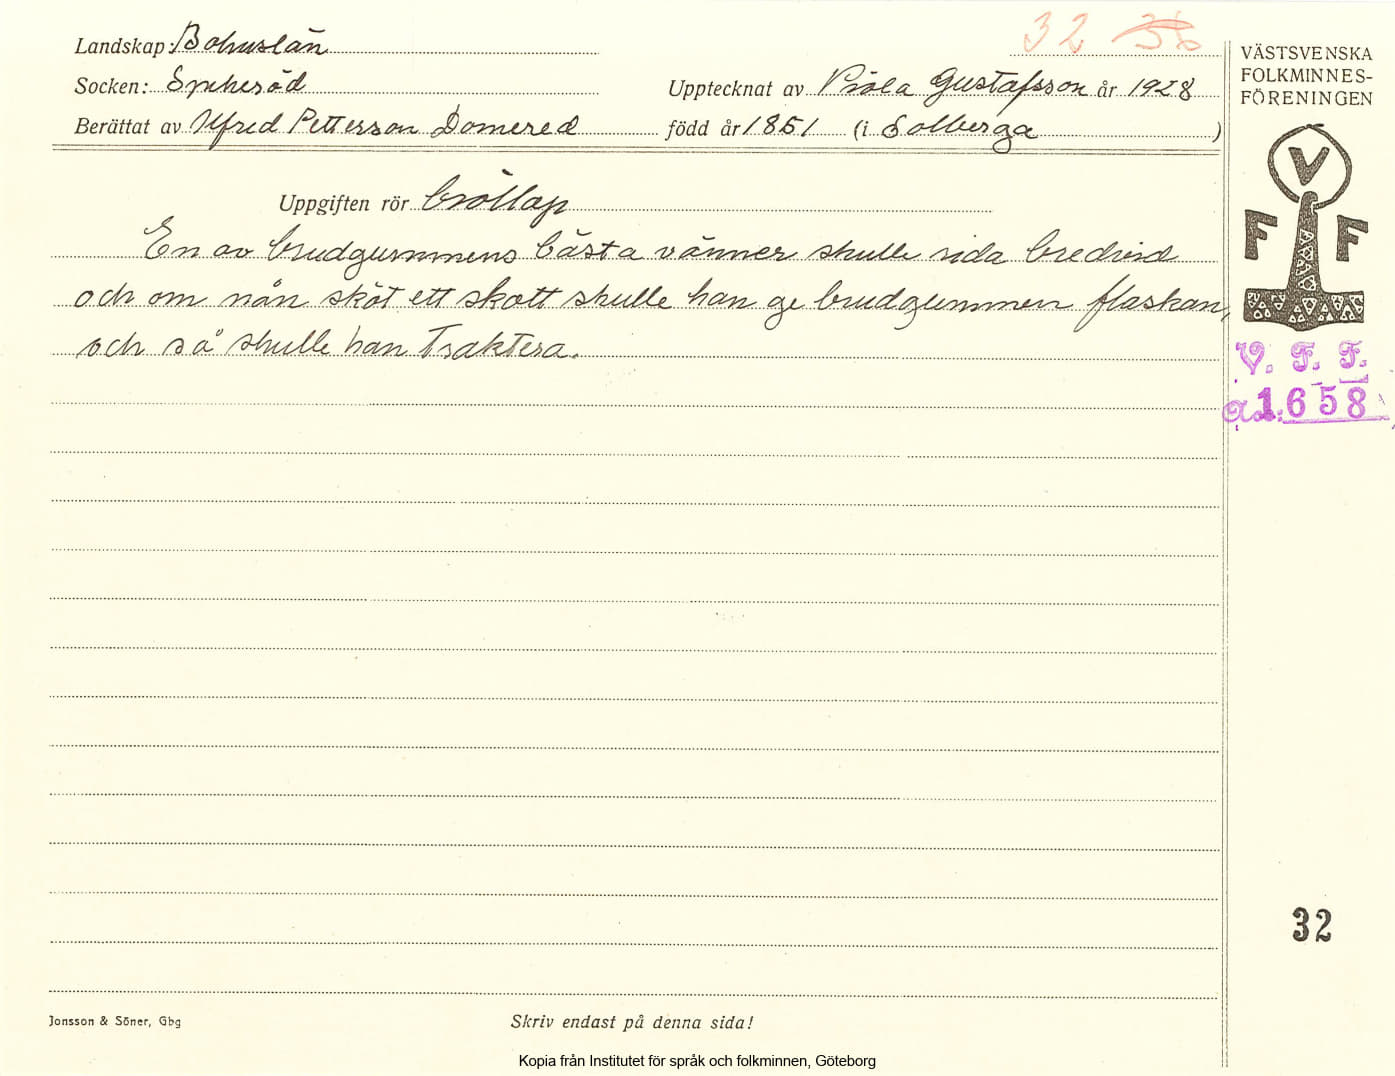 32 36
Landskap: Bohuslän
Socken: Spekeröd
Upptecknat av Viola Gustafsson år 1928
Berättat av Alfred Petterson Domered född år 1851 (i Solberga)
VÄSTSVENSKA
FOLKMINNES-
FÖRENINGEN
V
F F
Uppgiften rör bröllop
En av brudgummens bästa vänner skulle rida bredvid
och om nån sköt ett skott skulle han ge brudgummen flaskan,
och så skulle han traktera.
V. F. F.
Acc: 1658
32
Jonsson & Söner, Gbg
Skriv endast på denna sida!
Kopia från Institutet för språk och folkminnen, Göteborg